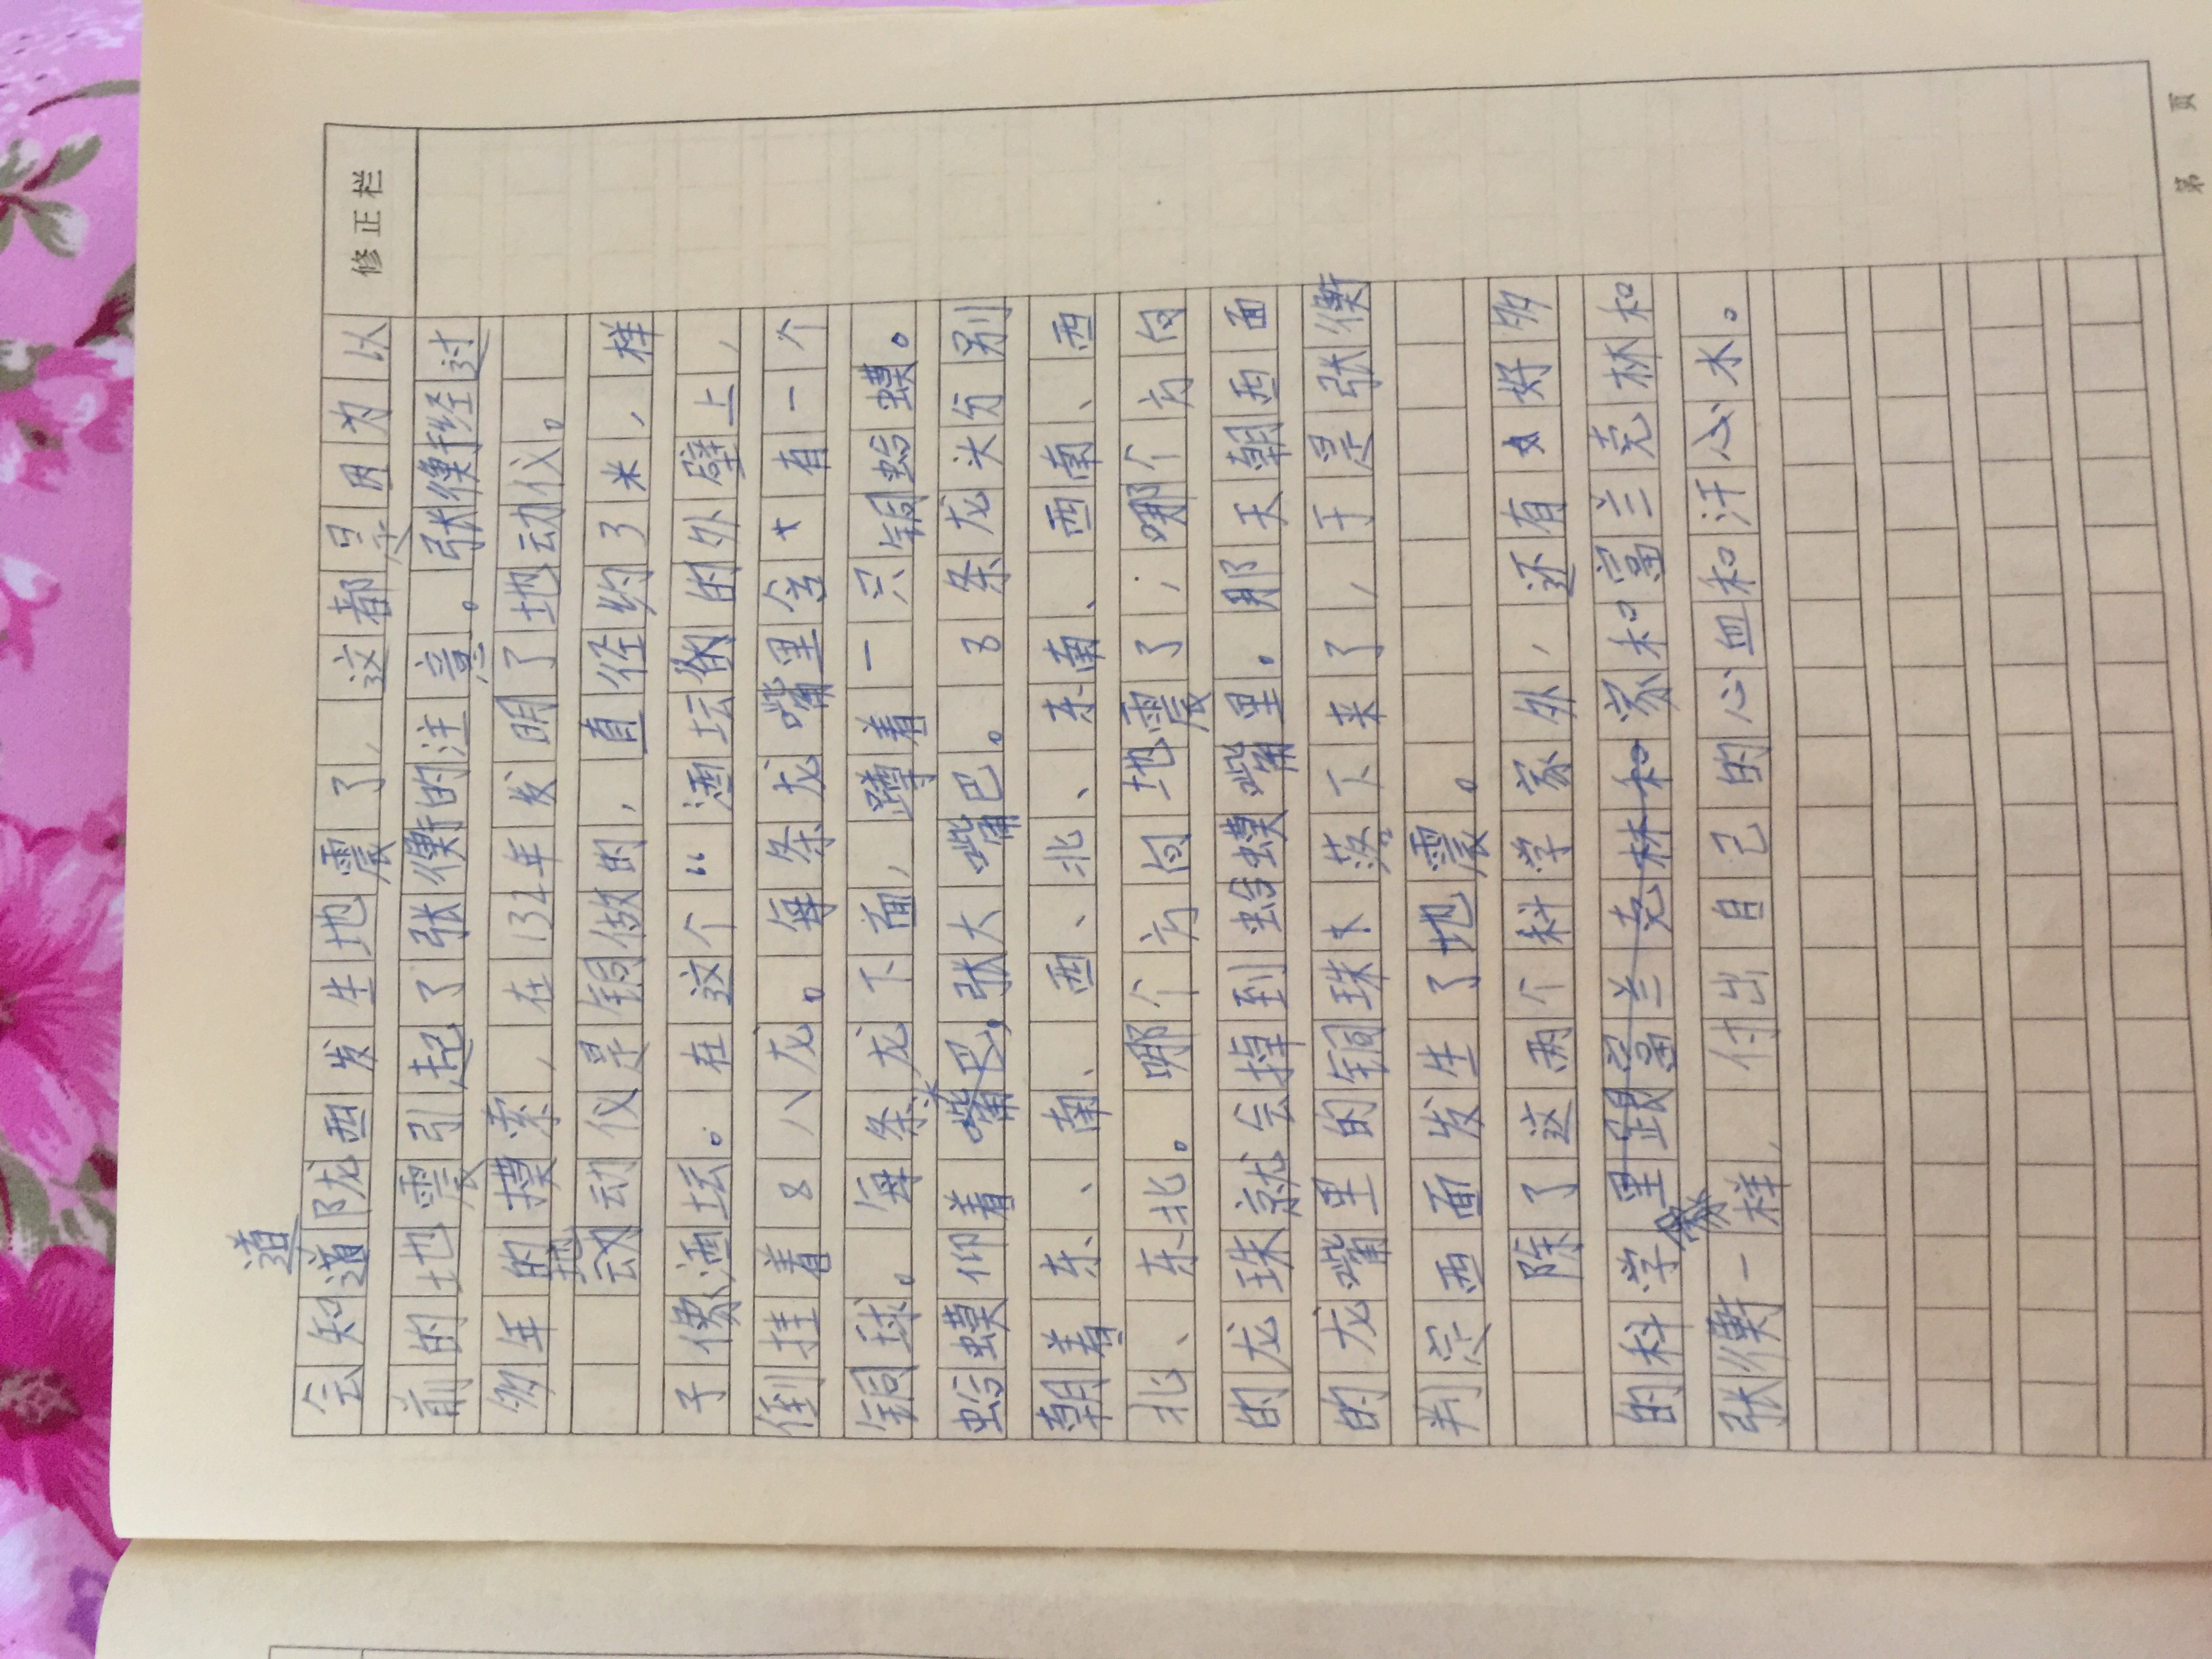 修正栏
道
会知道陇西发生地震了，这都是因为以
前的地震引起了张衡的注意。张衡经过
多年的摸索，在134年发明了地动仪。
地
动动仪是铜做的，直径约3米，样
子像酒坛。在这个“酒坛的外壁上，
倒挂着8八龙。每条龙嘴里含有一个
铜球。每条龙下面，蹲着一只铜蛤蟆。
蛤蟆仰着嘴巴，张大嘴巴。8条龙头分别
朝着东、南、西、北、东南、西南、西
北、东北。哪个方向地震了，哪个方向
的龙珠就会掉到蛤蟆嘴里。那天朝西面
的龙嘴里的铜珠落下来了，于是张衡
判定西面发生了地震。
除了这两个科学家外，还有好多
的科学家和富兰克林和
张衡一样，付出自己的心血和汗水。
第 页